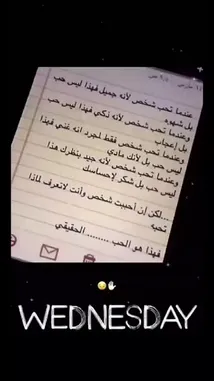 عندما تحب شخص لأنه جميل فهذا ليس حب
بل شهوه
وعندما تحب شخص لأنه ذكي فهذا ليس حب
بل إعجاب
وعندما تحب شخص فقط لمجرد انه غني فهذا
ليس حب بل لأنك مادي
وعندما تحب شخص لأنه جيد بنظرك هذا
ليس حب بل شكر لإحساسك
...لكن إن أحببت شخص وأنت لاتعرف لماذا
تحبه
فهذا هو الحب ......... الحقيقي
WEDNESDAY